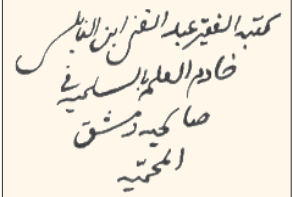 كتبه الفقير عبد الغني ابن النابلسي
خادم العلم بالسليميه في
صالحيه دمشق
المحميه